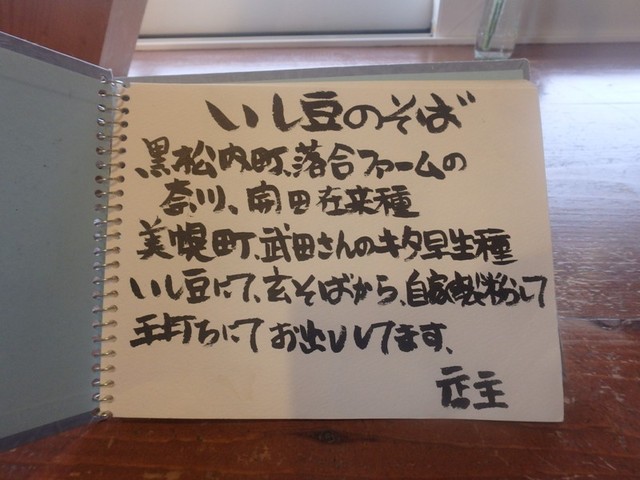 いし豆のそば
黒松内町、落合ファームの
奈川、開田在来種
美幌町、武田さんのキタ早生種
いし豆にて、玄そばから、自家製粉して
手打ちにてお出ししてます、
店主